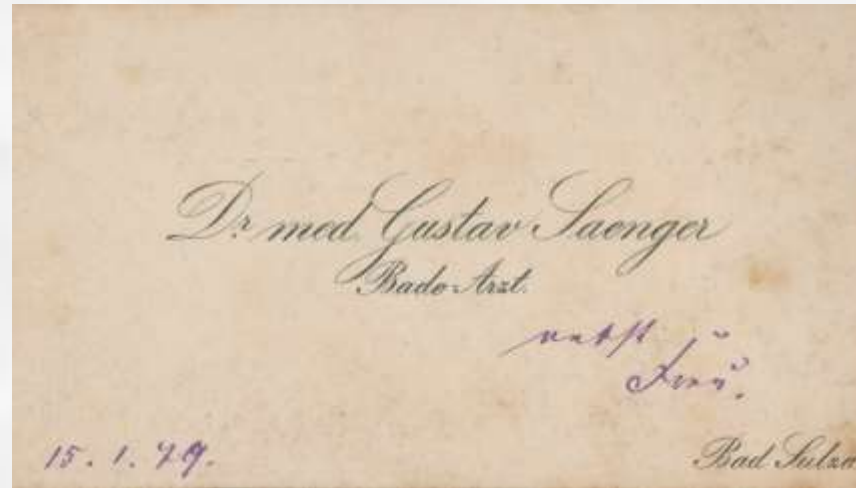 Dr. med. Gustav Saenger
Bade-Arzt.
nebst
Frau.
15. 1. 29.
Bad Sulza